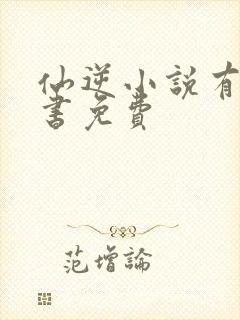 仙逆小說有
書免費
范增論